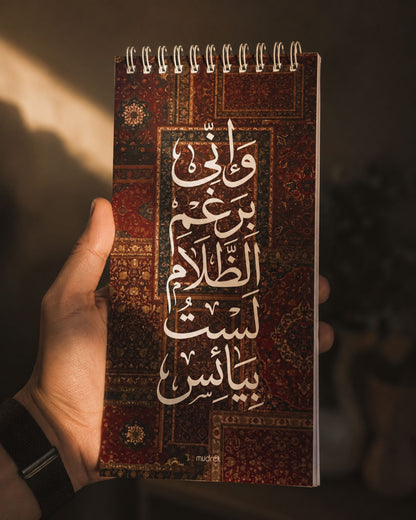 وَإنِّي
بَرَغْمِ
الَظَّلاَمِ
لَسْتُ
بِيَائِسِ
mudrek